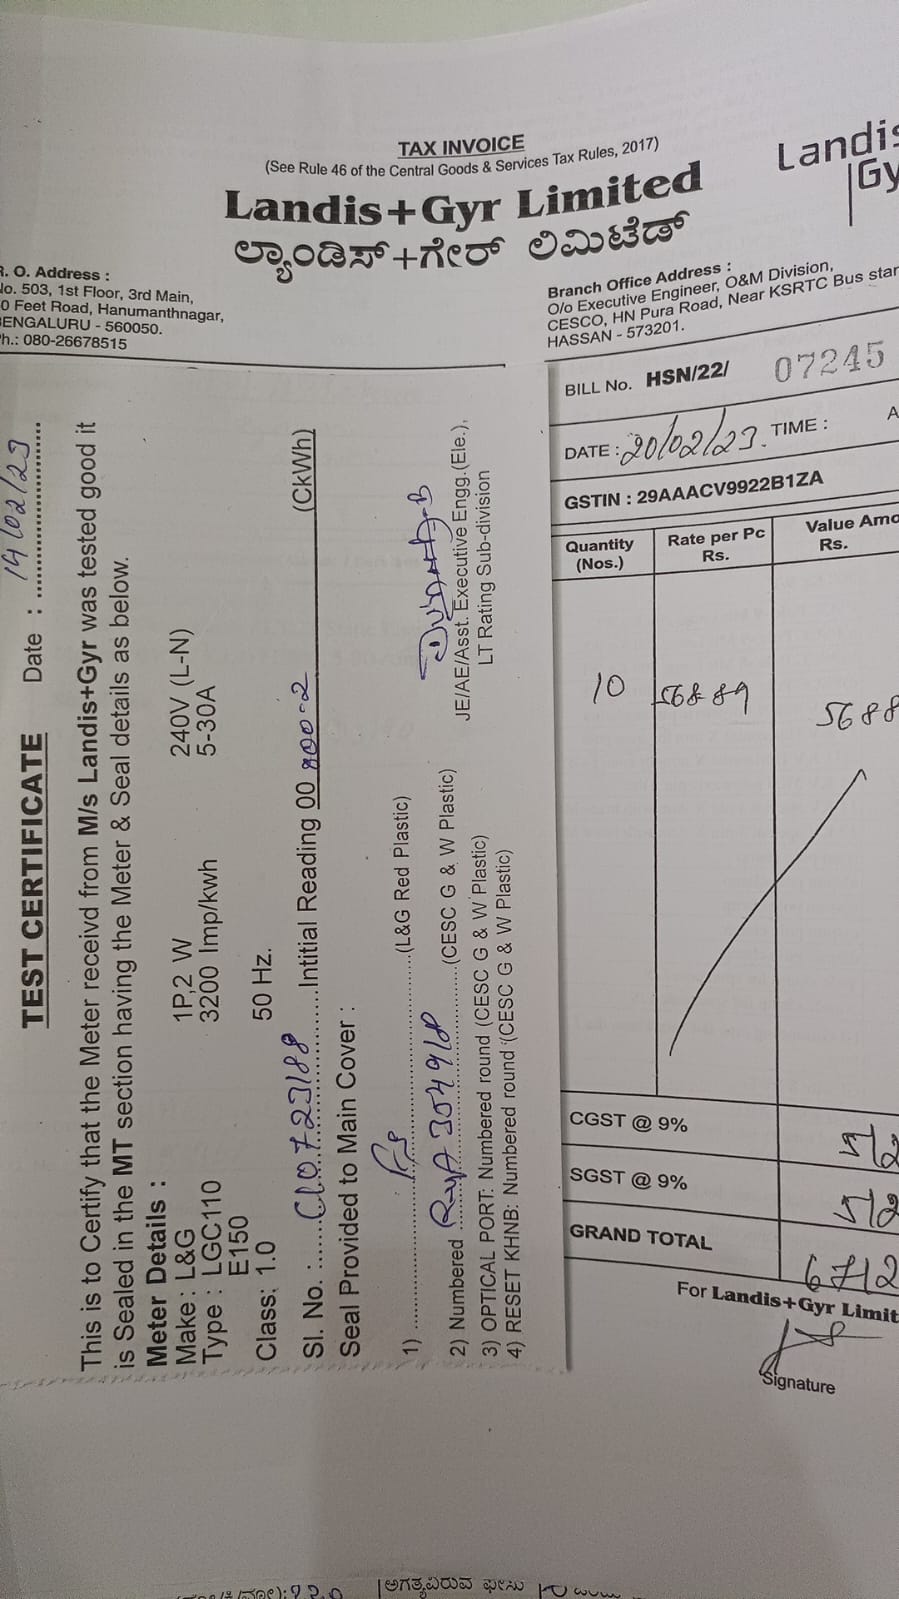 TAX INVOICE
(See Rule 46 of the Central Goods & Services Tax Rules, 2017)
Landis+Gyr Limited
ಲ್ಯಾಂಡಿಸ್+ಗೇರ್ ಲಿಮಿಟೆಡ್
Landis
Gy
R. O. Address :
No. 503, 1st Floor, 3rd Main,
0 Feet Road, Hanumanthnagar,
BENGALURU - 560050.
Ph.: 080-26678515
Branch Office Address :
O/o Executive Engineer, O&M Division,
CESCO, HN Pura Road, Near KSRTC Bus stan
HASSAN - 573201.
BILL No. HSN/22/ 07245
DATE : 20/02/23. TIME : A
GSTIN : 29AAACV9922B1ZA
Quantity (Nos.) Rate per Pc Rs. Value Amo Rs.
10 568-89 5688
CGST @ 9% 512
SGST @ 9% 512
GRAND TOTAL 6712
For Landis+Gyr Limit
Signature
TEST CERTIFICATE Date : 14/02/23
This is to Certify that the Meter receivd from M/s Landis+Gyr was tested good it
is Sealed in the MT section having the Meter & Seal details as below.
Meter Details :
Make : L&G 1P,2 W 240V (L-N)
Type : LGC110 3200 Imp/kwh 5-30A
E150
Class: 1.0 50 Hz.
Sl. No. : C10723188 Intitial Reading 00 000-2 (CkWh)
Seal Provided to Main Cover :
1) (L&G Red Plastic)
2) Numbered 354918 (CESC G & W Plastic)
JE/AE/Asst. Executive Engg.(Ele.),
3) OPTICAL PORT: Numbered round (CESC G & W Plastic)
LT Rating Sub-division
4) RESET KHNB: Numbered round (CESC G & W Plastic)
ಅಗತ್ಯವಿರುವ